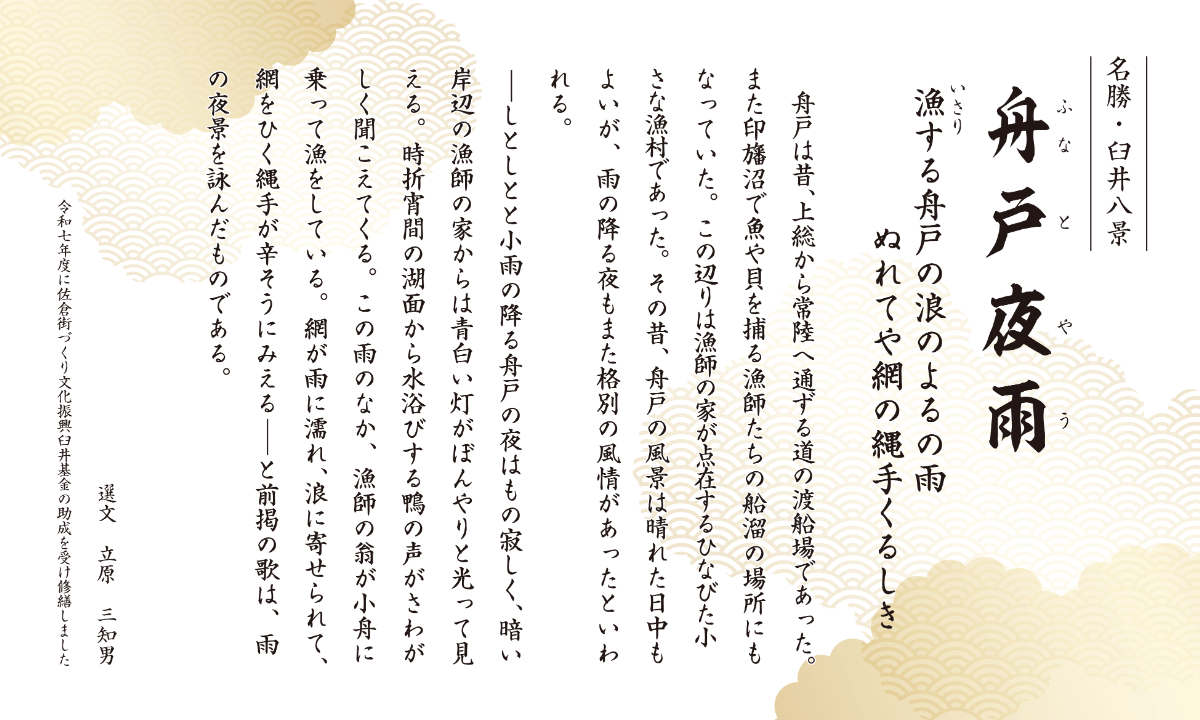 名勝・臼井八景
舟戸夜雨
ふなとやう
漁する舟戸の浪のよるの雨
いさり
ぬれてや網の縄手くるしき
舟戸は昔、上総から常陸へ通ずる道の渡船場であった。
また印旛沼で魚や貝を捕る漁師たちの船溜の場所にも
なっていた。この辺りは漁師の家が点在するひなびた小
さな漁村であった。その昔、舟戸の風景は晴れた日中も
よいが、雨の降る夜もまた格別の風情があったといわ
れる。
―しとしとと小雨の降る舟戸の夜はもの寂しく、暗い
岸辺の漁師の家からは青白い灯がぼんやりと光って見
える。時折宵間の湖面から水浴びする鴨の声がさわが
しく聞こえてくる。この雨のなか、漁師の翁が小舟に
乗って漁をしている。網が雨に濡れ、浪に寄せられて、
網をひく縄手が辛そうにみえる――と前掲の歌は、雨
の夜景を詠んだものである。
選文　立原　三知男
令和七年度に佐倉街づくり文化振興臼井基金の助成を受け修繕しました